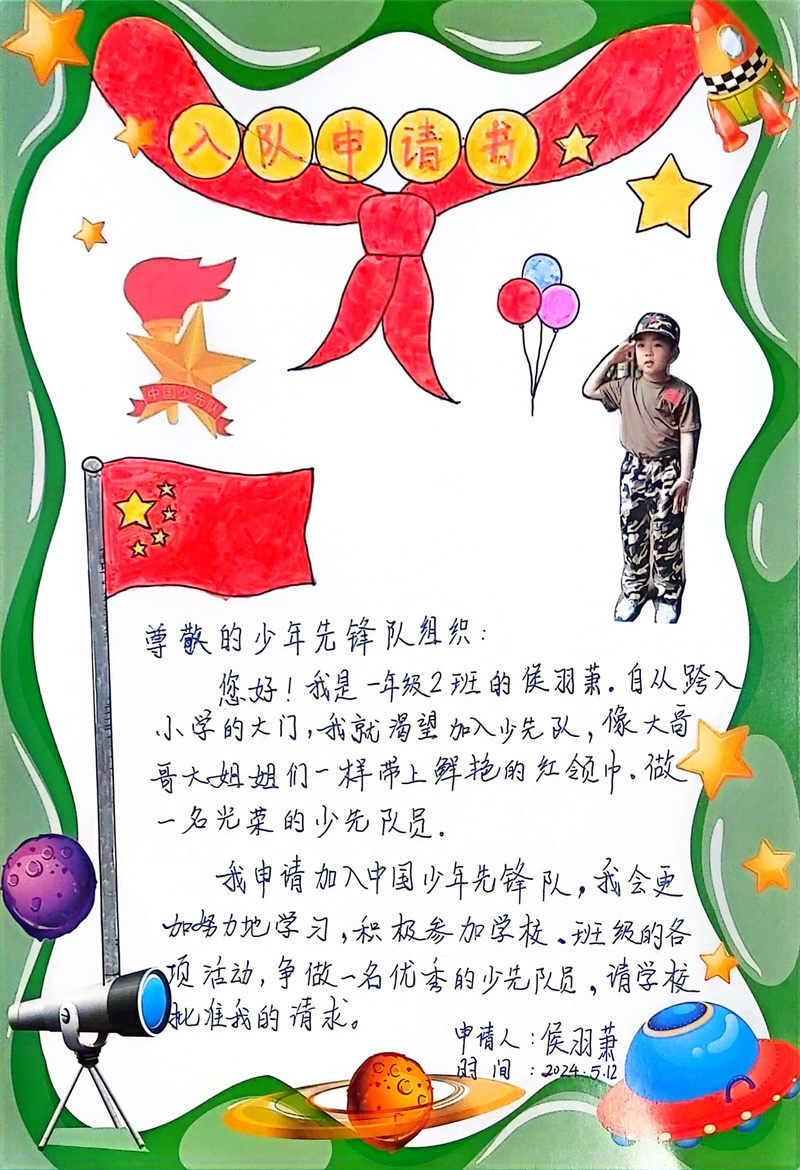 入队申请书
中国少先队
尊敬的少年先锋队组织：
您好！我是一年级2班的侯羽萧。自从跨入
小学的大门，我就渴望加入少先队，像大哥
哥大姐姐们一样带上鲜艳的红领巾。做
一名光荣的少先队员。
我申请加入中国少年先锋队，我会更
加努力地学习，积极参加学校、班级的各
项活动，争做一名优秀的少先队员，请学校
批准我的请求。
申请人：侯羽萧
时间：2024.5.12